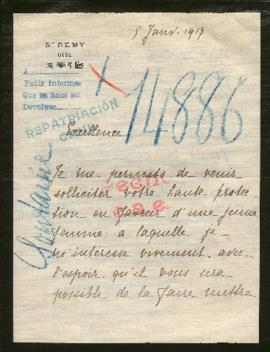 5 Janv. 1917
St REMY
A
Pedir informes
Que se hace sea
Devolver
+ 14886
REPATRIACIÓN
Excellence
Je me permets de venir
solliciter votre haute protec
tion en faveur d'une jeune
femme à laquelle je
m'intéresse vivement, avec
l'espoir qu'il vous sera
possible de la faire mettre